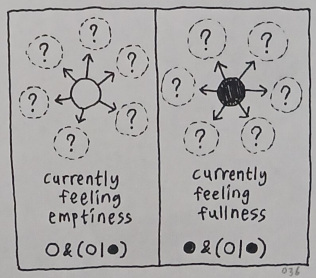 ?
?
?
?
?
?
currently
feeling
emptiness
○ & (○|●)
?
?
?
?
?
?
currently
feeling
fullness
● & (○|●)
036